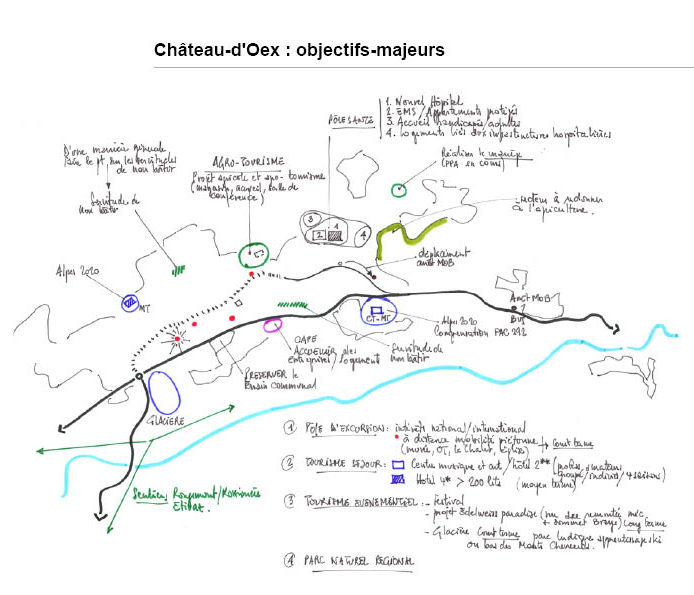 Château-d'Oex : objectifs-majeurs
1. Nouvel Hôpital
2. EMS / Appartements protégés
3. Accueil handicapés/adultes
4. Logements liés aux infrastructures hospitalières
PÔLE SANTÉ
D'une manière générale
les servitudes
de non bâtir
Servitude de
non bâtir
AGRO-TOURISME
Projet agricole et agro-tourisme
(magasin, accueil, salle de
conférence)
Réaliser le manège
(PPA en cours)
secteur à redonner
à l'agriculture.
déplacement
arrêt MOB
3
1
2
4
Alpes 2020
MT
CT-MT
Alpes 2020
Compensation PAC 292
Arrêt MOB
BUS
CAPE
ACCUEILLIR des
entreprises/logement
Servitude de
non bâtir
PRESERVER le
terrain communal
GLACIERE
Sentiers Rougemont/Rossinière
Etivaz.
1 PÔLE D'EXCURSION: intérêts national/international
à distance mobilité piétonne → Court terme
(musée, OT, le Chalet, Eglise)
2 TOURISME SEJOUR: Centre musique et art / hôtel 2**
groupe/individu/4 saisons)
Hôtel 4* > 200 lits (moyen terme)
3 TOURISME EVENEMENTIEL: - festival
- projet Edelweiss paradise
+ sommet Braye) Long terme
- Glacière Court terme parc ludique apprentissage ski
ou bas des Monts Chevreuils.
4 PARC NATUREL REGIONAL